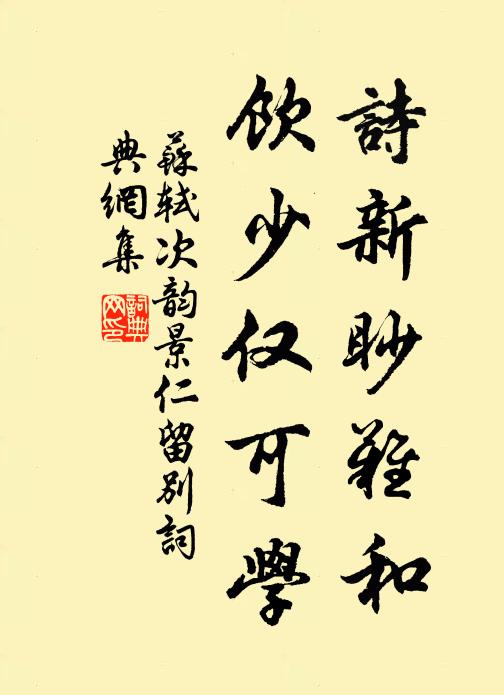 詩新眇難和
飲少仅可學
蘇軾次韵景仁留别詞
典網集
詞典网印